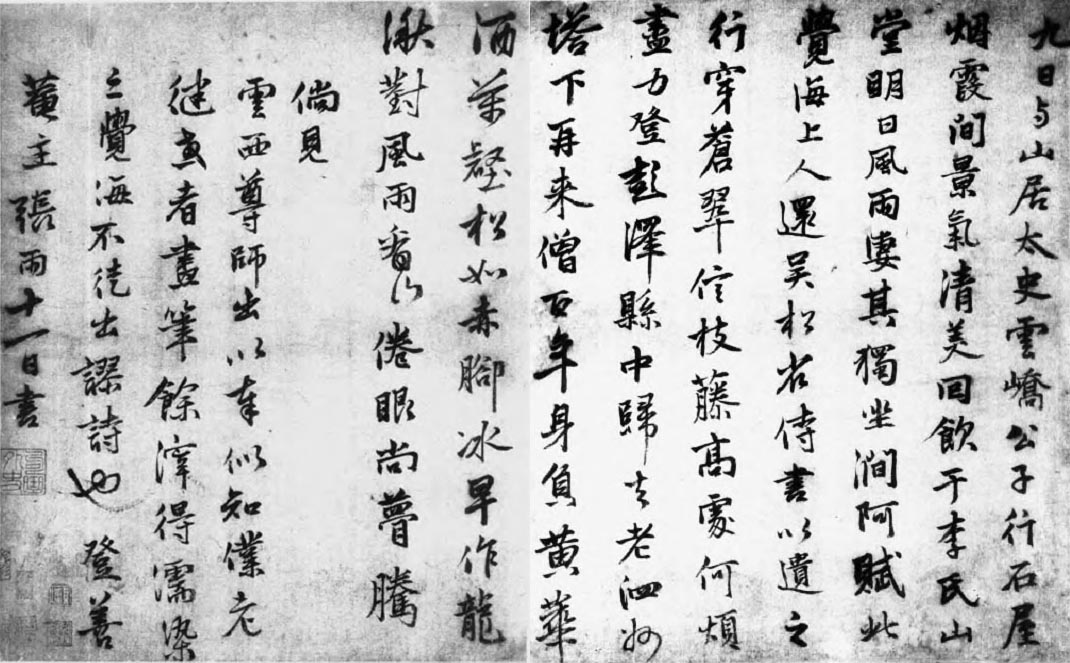 九日与山居太史雲嶠公子行石屋
烟霞間景氣清美回飲于李氏山
堂明日風雨凄其獨坐澗阿賦此
覺海上人還吳松省侍書以遺之
行穿蒼翠信枝藤高處何煩
盡力登彭澤縣中歸去老泗州
塔下再來僧百年身負黄華
酒萬壑松如赤腳冰早作龍
湫對風雨看山倦眼尚瞢騰
倘見
雲西尊師出以奉似知僕老
健或者畫筆餘滓得濡染
之覺海不徒出謬詩也登善
菴主張雨十一日書